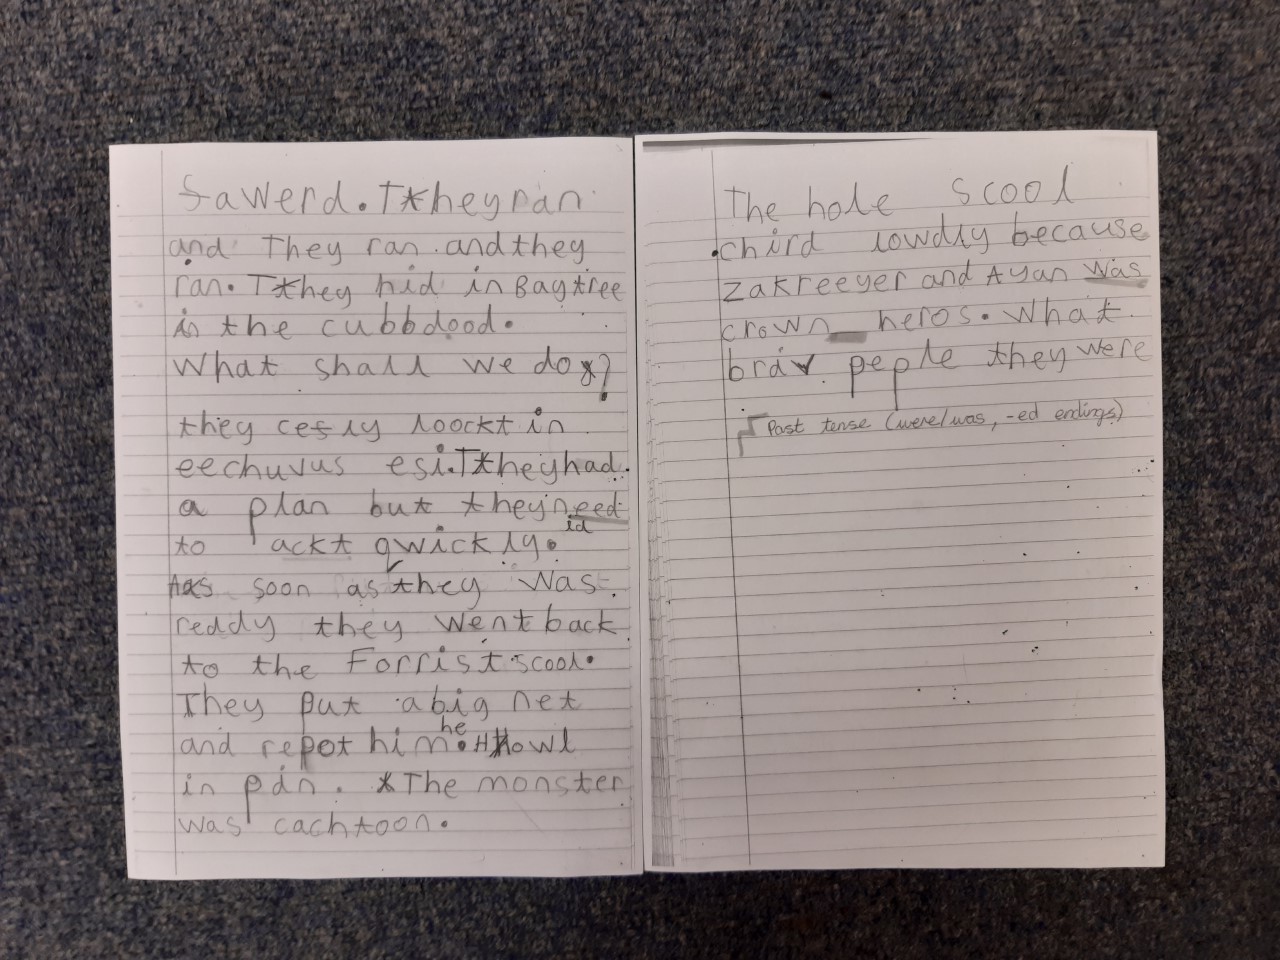 Sawerd. They ran
and They ran and they
ran. They hid in Baytree
in the cubbdood.
What shall we do?
they cesly loockt in
eechuvus esi. They had
a plan but they need
id
to ackt qwickly.
As soon as they was
reddy they went back
to the Forrist scool.
They put a big net
and repot him. he Howl
in pan. The monster
was cachtoon.
The hole scool
chird lowdly because
zakreeyer and Ayan was
crown heros. What
brav peple they were
Past tense (were/was, -ed endings)